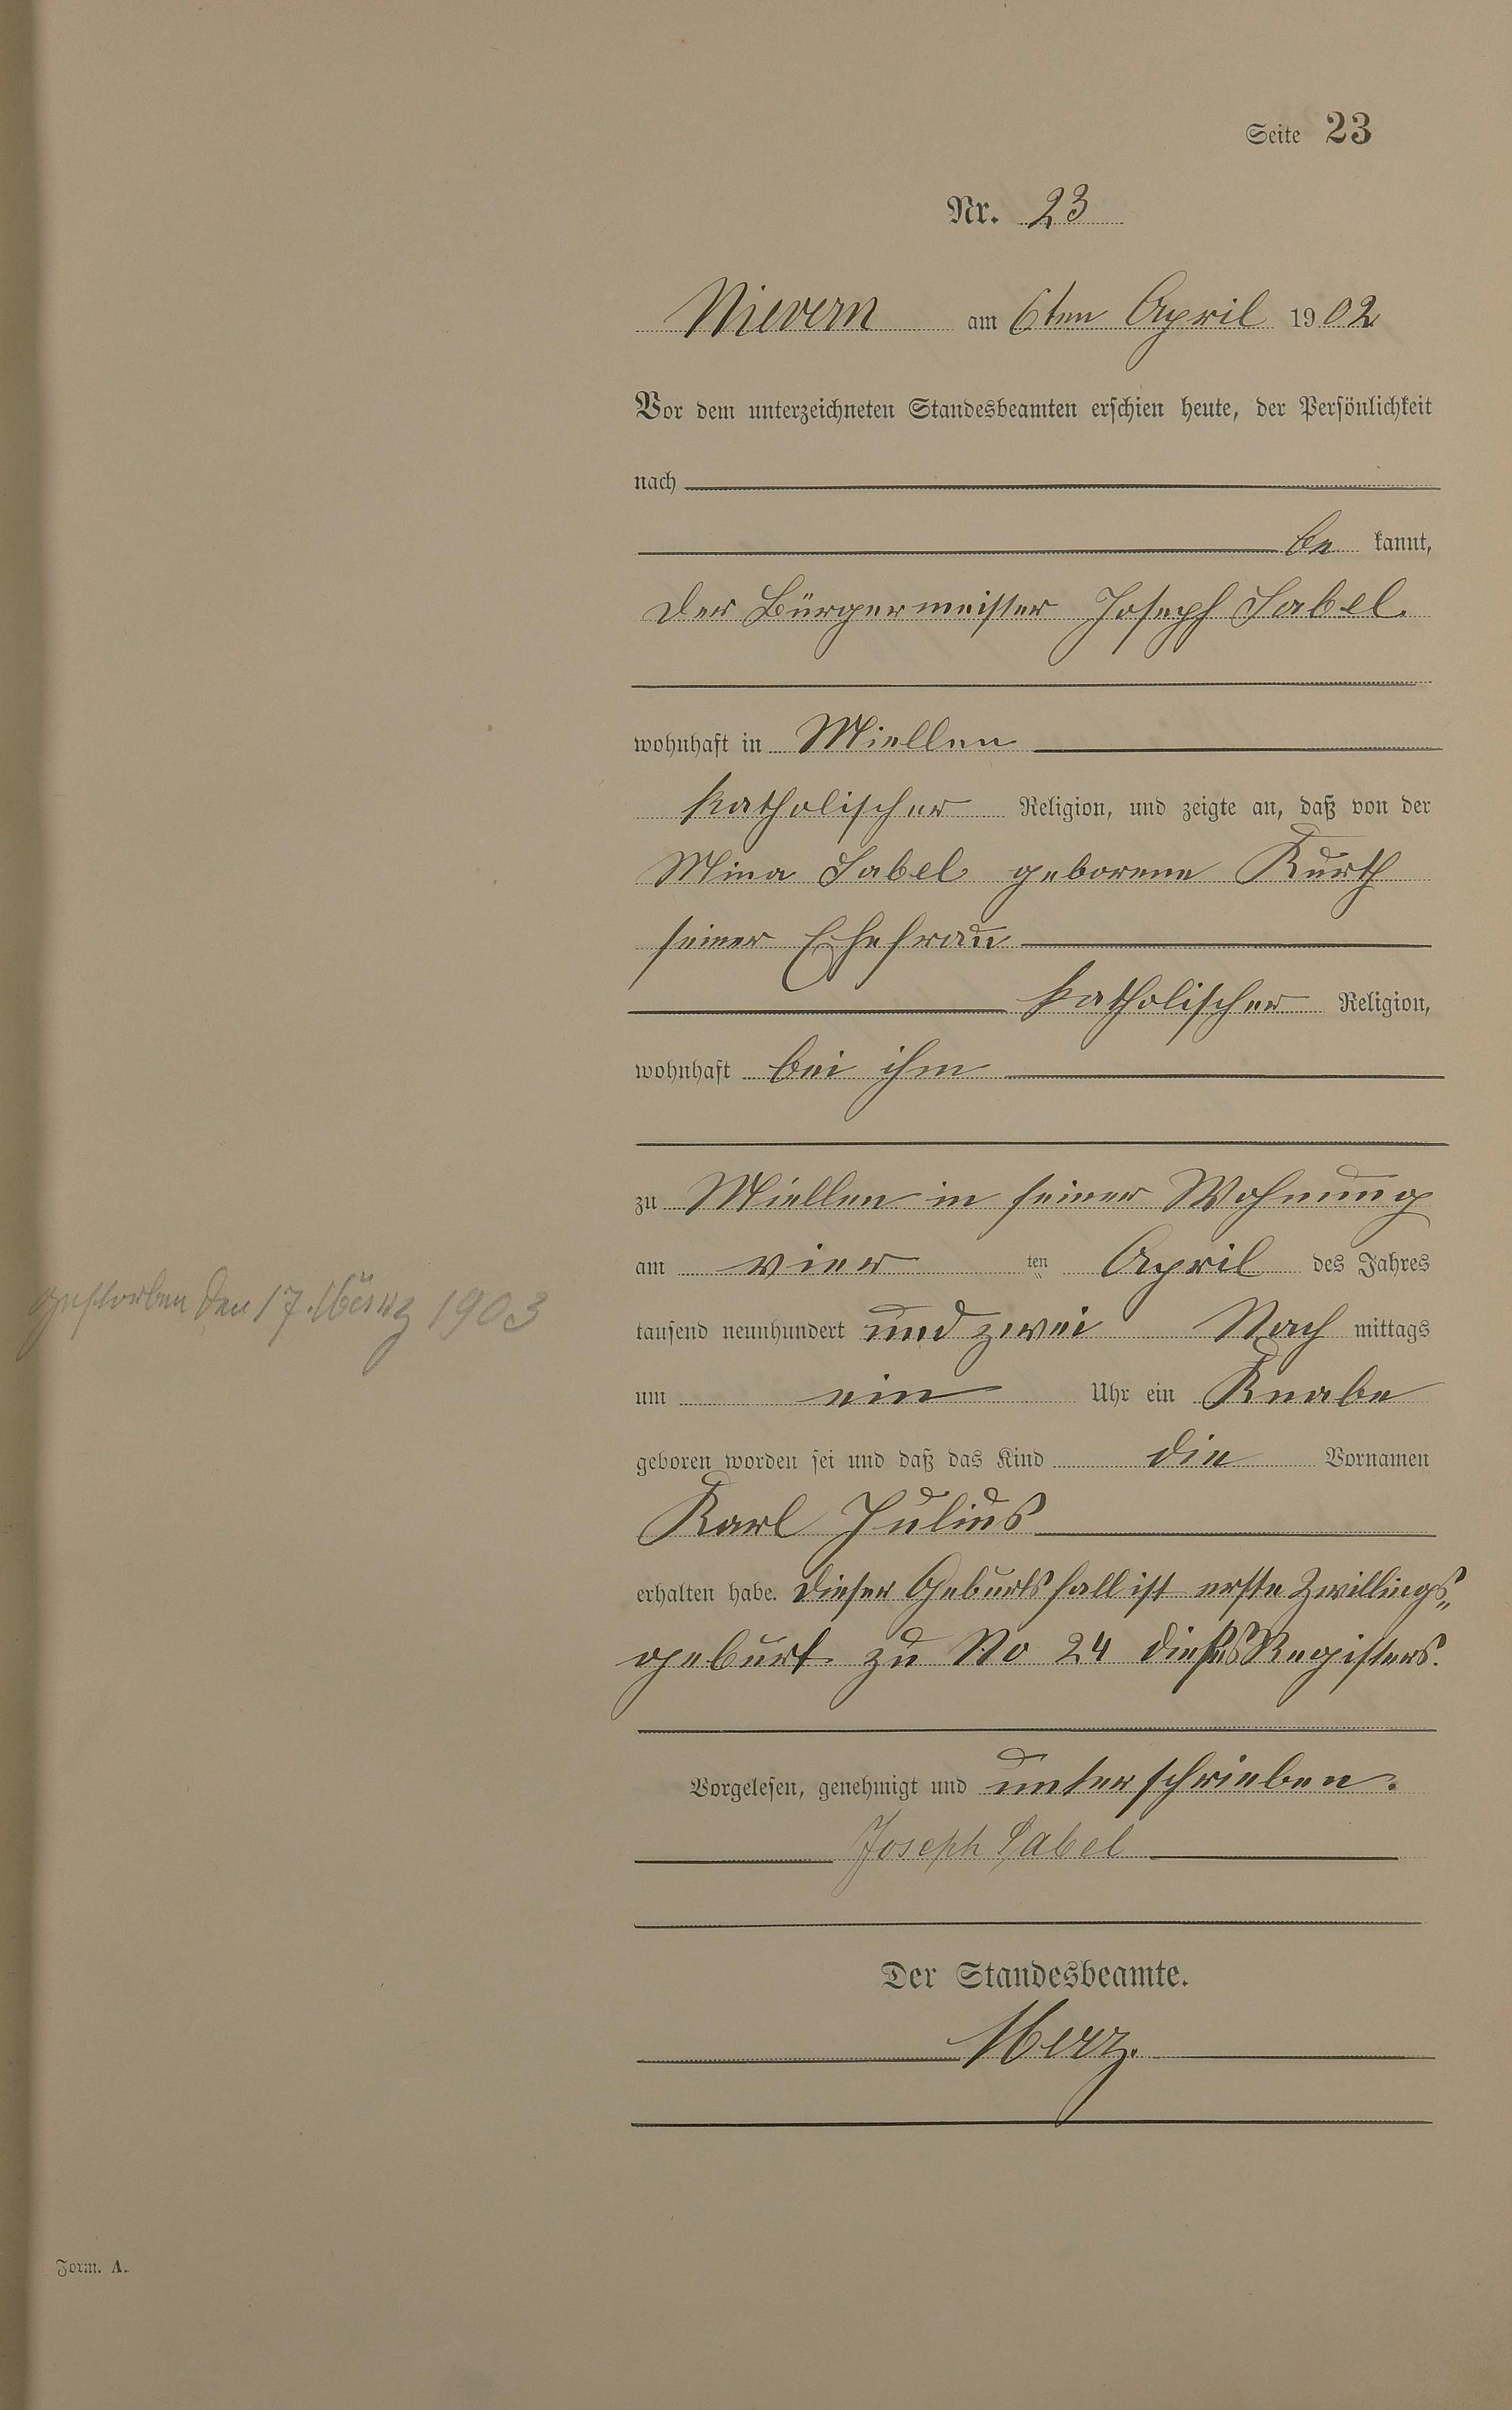 Seite 23
Nr. 23
Nievern am 6ten April 1902
Vor dem unterzeichneten Standesbeamten erschien heute, der Persönlichkeit
nach
be kannt,
der Bürgermeister Joseph Sabel
wohnhaft in Miellen
katholischer Religion, und zeigte an, daß von der
Mina Sabel geborene Kurth
seiner Ehefrau
katholischer Religion,
wohnhaft bei ihm
zu Miellen in seiner Wohnung
am vier ten April des Jahres
gestorben den 17. März 1903
tausend neunhundert und zwei Nach mittags
um ein Uhr ein Knabe
geboren worden sei und daß das Kind die Vornamen
Karl Julius
erhalten habe. Dieser Geburtsfall ist erste Zwillings„
geburt zu No 24 dieses Registers.
Vorgelesen, genehmigt und unterschrieben.
Joseph Sabel
Der Standesbeamte.
Merz.
Form. A.